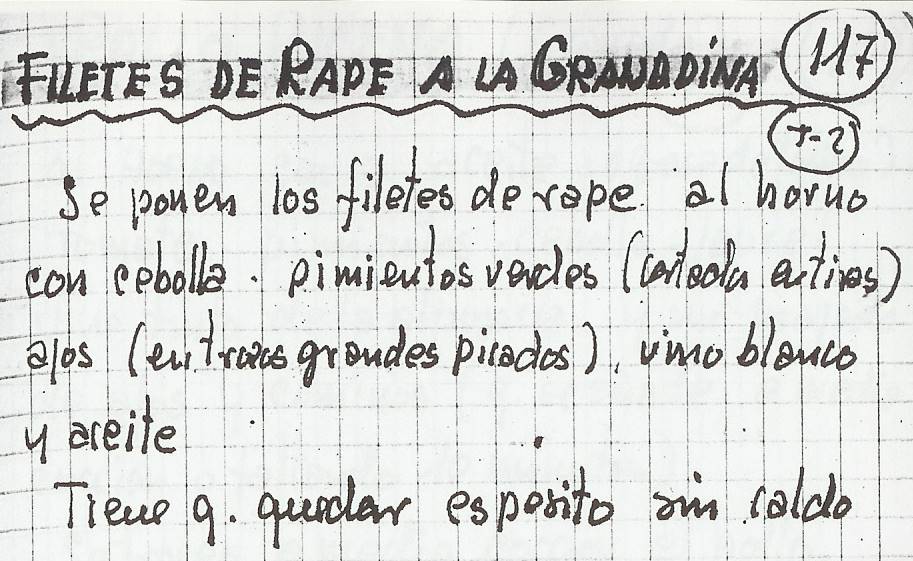 FILETES DE RAPE A LA GRANADINA 117
T-2
Se ponen los filetes de rape al horno
con cebolla. pimientos verdes (cortada en tiras)
ajos (en trozos grandes picados), vino blanco
y aceite
Tiene q. quedar espesito sin caldo